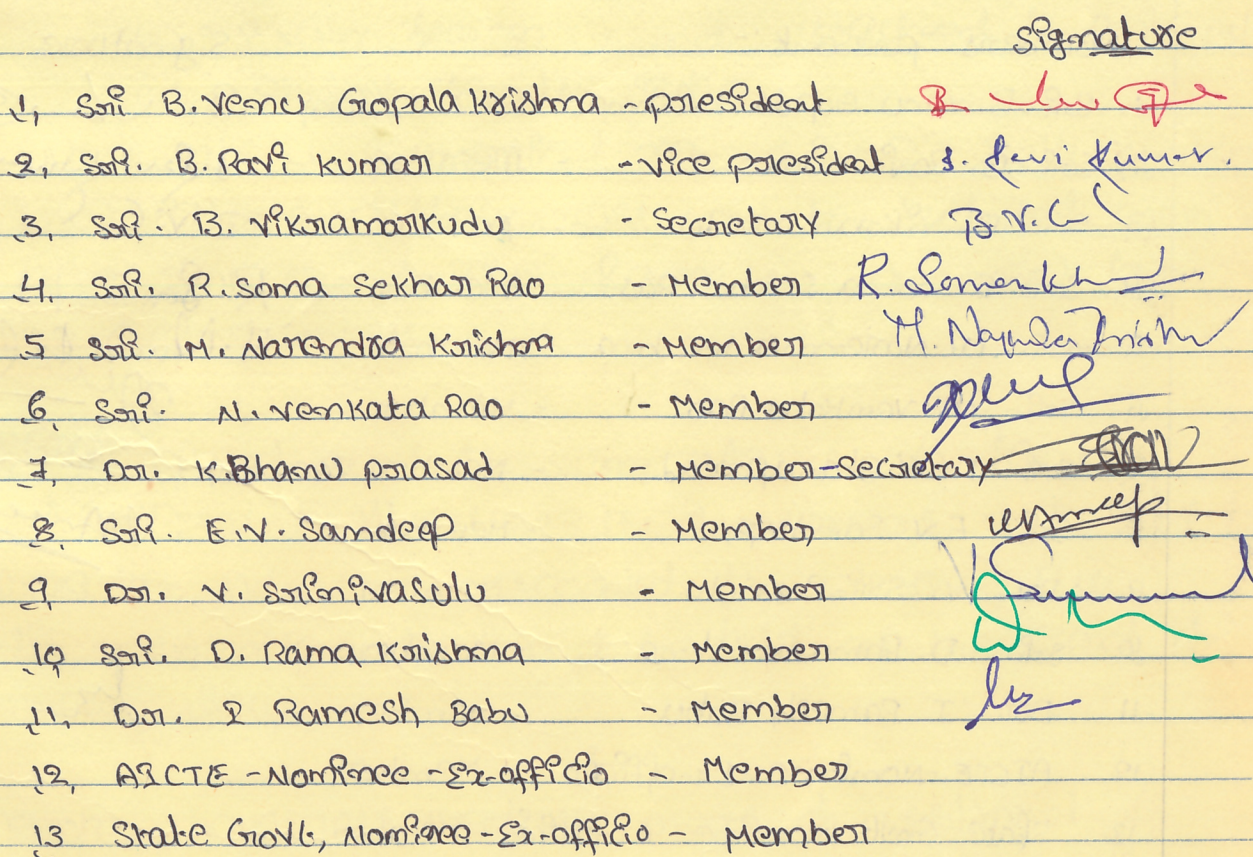 Signature
1, Sri B. Venu Gopala Krishna - president
2, Sri. B. Ravi Kumar - vice president B. Ravi Kumar.
3, Sri. B. Vikramarkudu - Secretary
4. Sri. R. Soma Sekhar Rao - Member R.
5 Sri. M. Narendra Krishna - Member M
6, Sri. N. Venkata Rao - Member
7, Dr. K. Bhanu prasad - Member-Secretary
8, Sri. E.V. Sandeep - Member
9, Dr. V. Srinivasulu - Member
10, Sri. D. Rama Krishna - Member
11, Dr. I Ramesh Babu - Member
12, AICTE - Nominee - Ex-officio - Member
13 State Govt, Nominee - Ex-officio - Member